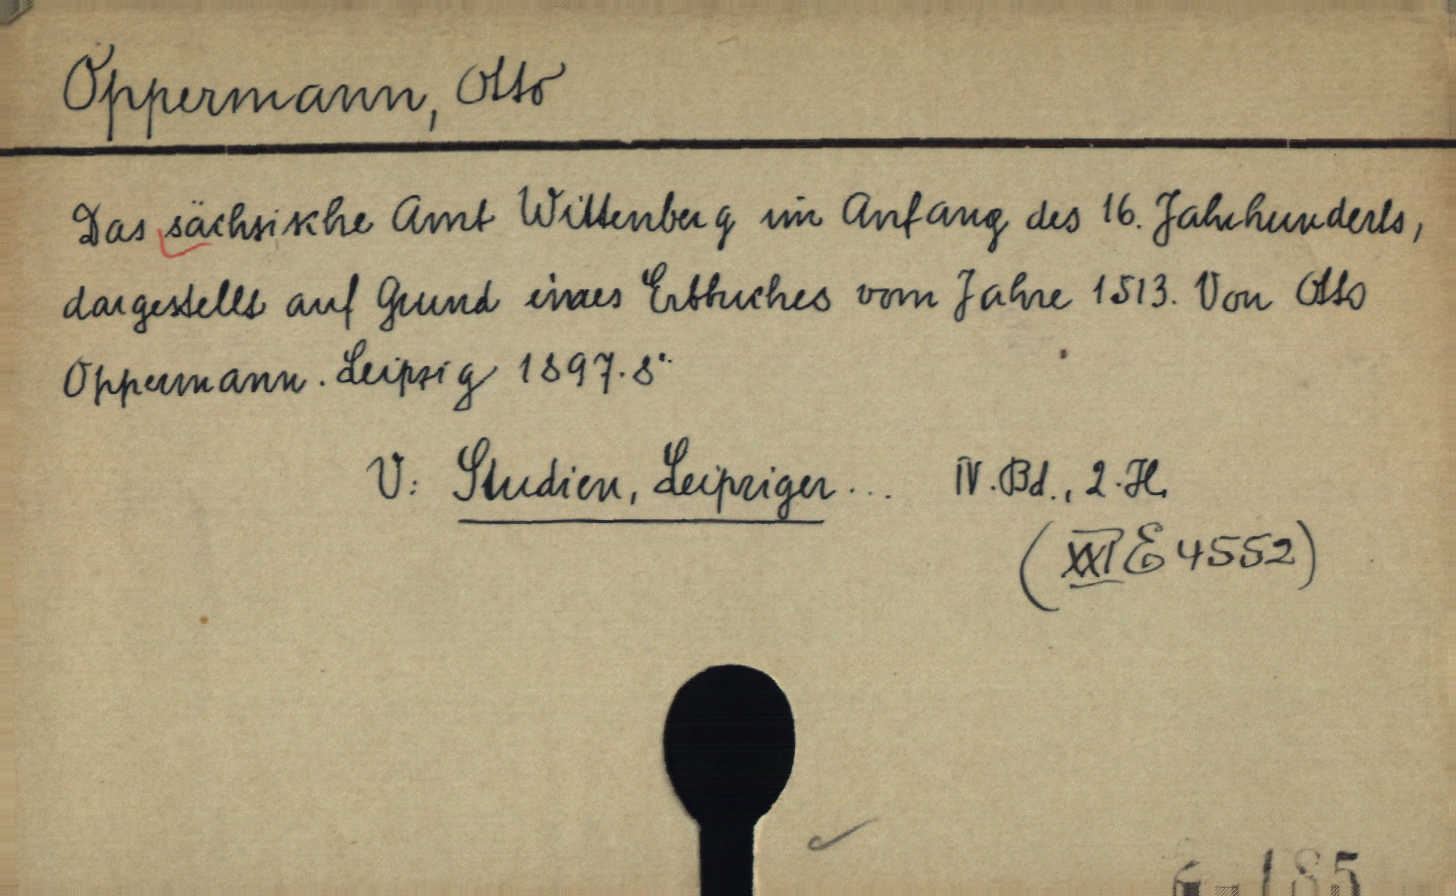 Oppermann, Otto
Das sächsische Amt Wittenberg im Anfang des 16. Jahrhunderts,
dargestellt auf Grund eines Erbbuches vom Jahre 1513. Von Otto
Oppermann. Leipzig 1897. 8°.
V: Studien, Leipziger ... IV. Bd., 2. H.
(XXI E 4552)